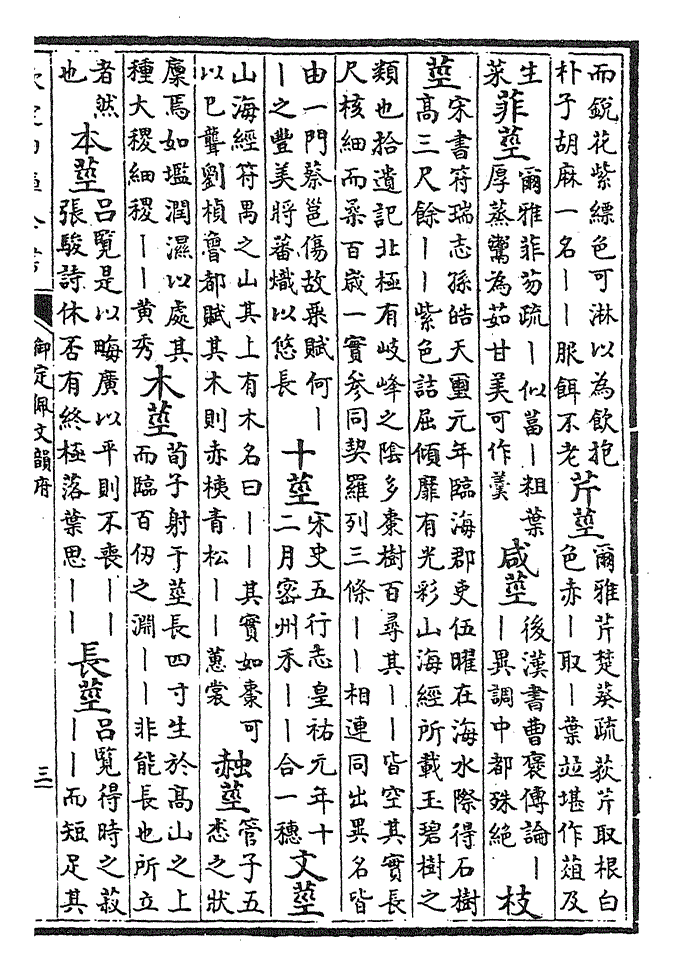 而銳花紫縹色可淋以為飲抱
朴子胡麻一名——服餌不老
芹莖
爾雅芹楚葵疏荻芹取根白
色赤—取—葉竝堪作葅及
生
菜
菲莖
爾雅菲芴疏—似葍—粗葉
厚蒸鬻為茹甘美可作羹
咸莖
後漢書曹褒傳論—
—異調中都殊絕
枝
莖
宋書符瑞志孫皓天璽元年臨海郡吏伍曜在海水際得石樹
高三尺餘——紫色詰屈傾靡有光彩山海經所載玉碧樹之
類也拾遺記北極有岐峰之陰多棗樹百尋其——皆空其實長
尺核細而柔百歲一實參同契羅列三條——相連同出異名皆
由一門蔡邕傷故栗賦何—
—之豐美將蕃熾以悠長
十莖
宋史五行志皇祐元年十
二月密州禾——合一穗
文莖
山海經符禺之山其上有木名曰——其實如棗可
以已聾劉楨魯都賦其木則赤桋青松——蕙裳
赨莖
管子五
悉之狀
廩焉如壏潤濕以處其
種大稷細稷——黃秀
木莖
荀子射于莖長四寸生於高山之上
而臨百仞之淵——非能長也所立
者然
也
本莖
呂覽是以晦廣以平則不喪——
張駿詩休否有終極落葉思——
長莖
呂覽得時之菽
——而短足其
御定佩文韻府
三